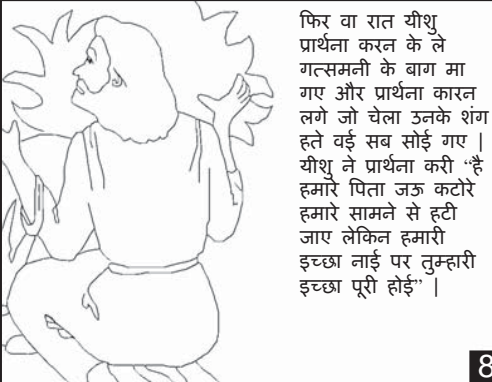 फिर वा रात यीशु
प्रार्थना करन के ले
गत्समनी के बाग मा
गए और प्रार्थना कारन
लगे जो चेला उनके शंग
हते वई सब सोई गए |
यीशु ने प्रार्थना करी “है
हमारे पिता जऊ कटोरे
हमारे सामने से हटी
जाए लेकिन हमारी
इच्छा नाई पर तुम्हारी
इच्छा पूरी होई” |
8